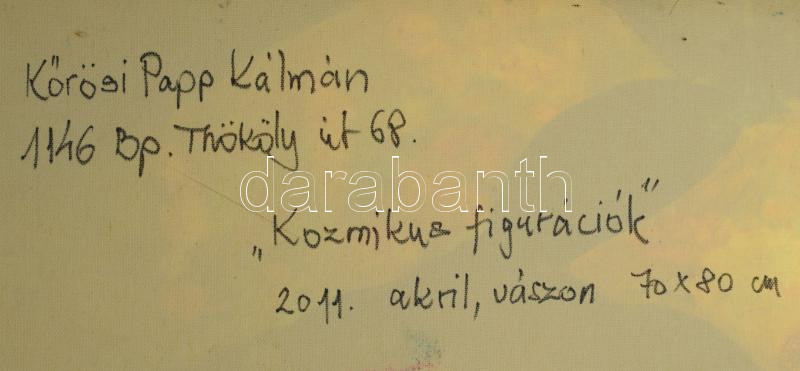 Kőrösi Papp Kálmán
1146 Bp. Thököly út 68.
darabanth
„Kozmikus figurációk"
2011. akril, vászon 70x80 cm